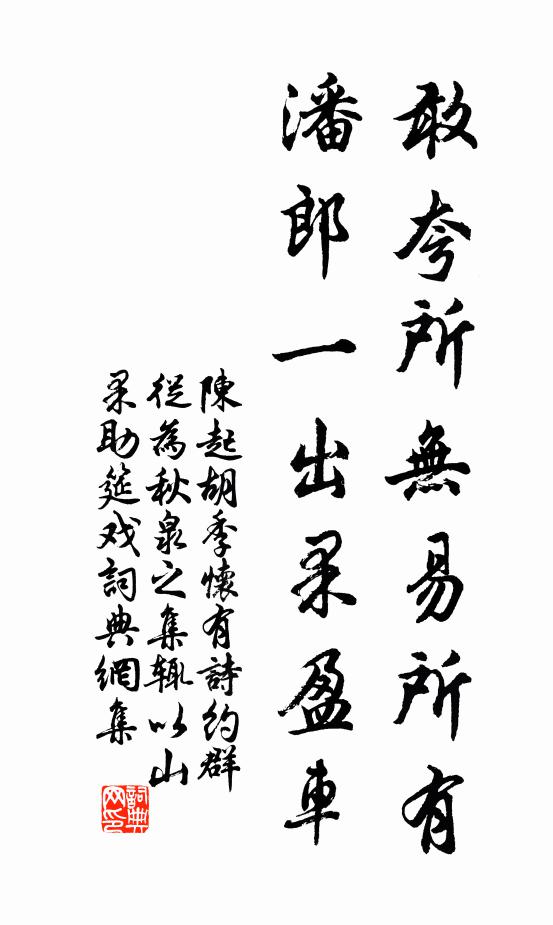 敢夸所無易所有
潘郎一出果盈車
陳起胡季懷有詩約群
從為秋泉之集輒以山
果助筵戏詞典網集
詞典网印